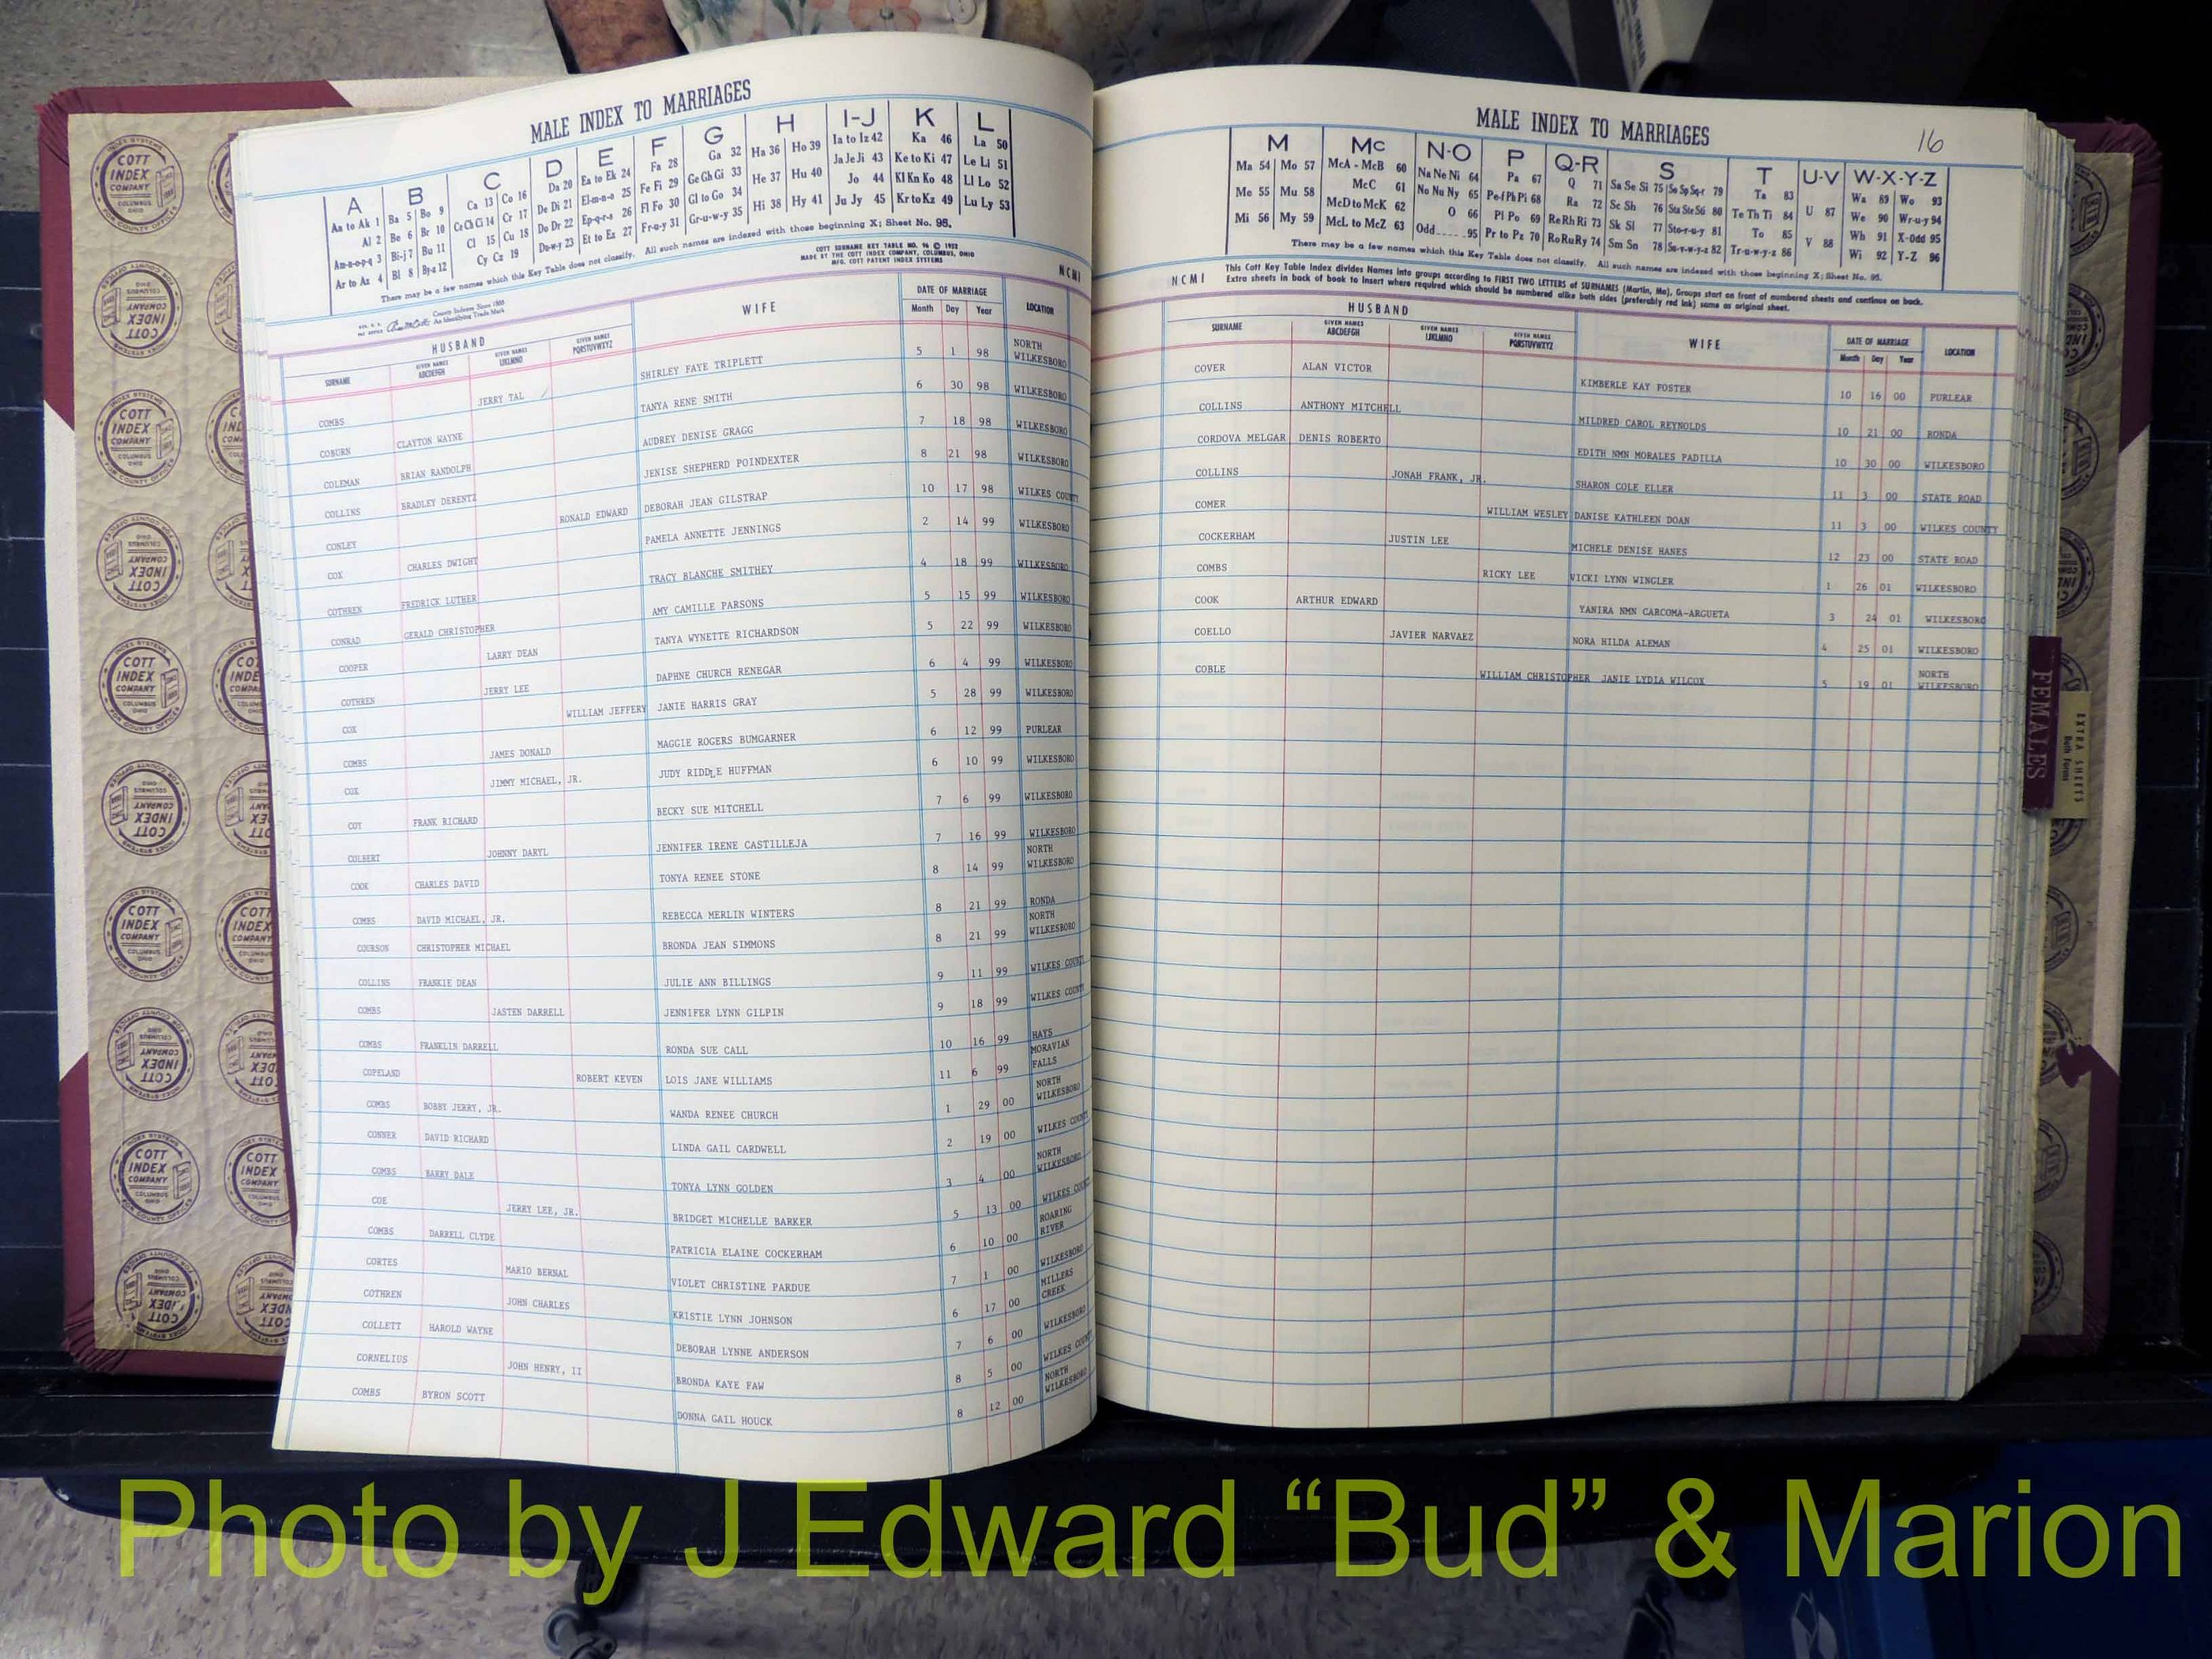 MALE INDEX TO MARRIAGES
A B C D E F G H I-J K L
Aa to Ak 1 Ba 5 Bo 9 Ca 13 Co 16 Da 20 Ea to Ek 24 Fa 28 Ga 32 Ha 36 Ho 39 Ia to Iz 42 Ka 46 La 50
Al 2 Be 6 Br 10 Ce Ch Ci 14 Cr 17 De Di 21 El-m-n-o 25 Fe Fi 29 Ge Gh Gi 33 He 37 Hu 40 Ja Je Ji 43 Ke to Ki 47 Le Li 51
Am-n-o-p-q 3 Bi-j 7 Bu 11 Cl 15 Cu 18 Do Dr 22 Ep-q-r-s 26 Fl Fo 30 Gl to Go 34 Hi 38 Hy 41 Jo 44 Kl Kn Ko 48 Ll Lo 52
Ar to Az 4 Bl 8 By-z 12 Cy Cz 19 Du-w-y 23 Et to Ez 27 Fr-u-y 31 Gr-u-w-y 35 Ju Jy 45 Kr to Kz 49 Lu Ly 53
There may be a few names which this Key Table does not classify. All such names are indexed with those beginning X; Sheet No. 95.
COTT SURNAME KEY TABLE NO. 96 © 1952
MADE BY THE COTT INDEX COMPANY, COLUMBUS, OHIO
MFG. COTT PATENT INDEX SYSTEMS
NCMI
County Indexes Since 1888
An Identifying Trade Mark
HUSBAND WIFE DATE OF MARRIAGE LOCATION
SURNAME GIVEN NAMES ABCDEFGH GIVEN NAMES IJKLMNO GIVEN NAMES PQRSTUVWXYZ Month Day Year
COMBS JERRY TAL SHIRLEY FAYE TRIPLETT 5 1 98 NORTH WILKESBORO
COBURN CLAYTON WAYNE TANYA RENE SMITH 6 30 98 WILKESBORO
COLEMAN BRIAN RANDOLPH AUDREY DENISE GRAGG 7 18 98 WILKESBORO
COLLINS BRADLEY DERENTZ JENISE SHEPHERD POINDEXTER 8 21 98 WILKESBORO
CONLEY RONALD EDWARD DEBORAH JEAN GILSTRAP 10 17 98 WILKES COUNTY
COX CHARLES DWIGHT PAMELA ANNETTE JENNINGS 2 14 99 WILKESBORO
COTHREN FREDRICK LUTHER TRACY BLANCHE SMITHEY 4 18 99 WILKESBORO
CONRAD GERALD CHRISTOPHER AMY CAMILLE PARSONS 5 15 99 WILKESBORO
COOPER LARRY DEAN TANYA WYNETTE RICHARDSON 5 22 99 WILKESBORO
COTHREN JERRY LEE DAPHNE CHURCH RENEGAR 6 4 99 WILKESBORO
COX WILLIAM JEFFERY JANIE HARRIS GRAY 5 28 99 WILKESBORO
COMBS JAMES DONALD MAGGIE ROGERS BUMGARNER 6 12 99 PURLEAR
COX JIMMY MICHAEL, JR. JUDY RIDDLE HUFFMAN 6 10 99 WILKESBORO
COY FRANK RICHARD BECKY SUE MITCHELL 7 6 99 WILKESBORO
COLBERT JOHNNY DARYL JENNIFER IRENE CASTILLEJA 7 16 99 WILKESBORO
COOK CHARLES DAVID TONYA RENEE STONE 8 14 99 NORTH WILKESBORO
COMBS DAVID MICHAEL, JR. REBECCA MERLIN WINTERS 8 21 99 RONDA
COURSON CHRISTOPHER MICHAEL BRONDA JEAN SIMMONS 8 21 99 NORTH WILKESBORO
COLLINS FRANKIE DEAN JULIE ANN BILLINGS 9 11 99 WILKES COUNTY
COMBS JASTEN DARRELL JENNIFER LYNN GILPIN 9 18 99 WILKES COUNTY
COMBS FRANKLIN DARRELL RONDA SUE CALL 10 16 99 HAYS
COPELAND ROBERT KEVEN LOIS JANE WILLIAMS 11 6 99 MORAVIAN FALLS
COMBS BOBBY JERRY, JR. WANDA RENEE CHURCH 1 29 00 NORTH WILKESBORO
CONNER DAVID RICHARD LINDA GAIL CARDWELL 2 19 00 WILKES COUNTY
COMBS BARRY DALE TONYA LYNN GOLDEN 3 4 00 NORTH WILKESBORO
COE JERRY LEE, JR. BRIDGET MICHELLE BARKER 5 13 00 WILKES COUNTY
COMBS DARRELL CLYDE PATRICIA ELAINE COCKERHAM 6 10 00 ROARING RIVER
CORTES MARIO BERNAL VIOLET CHRISTINE PARDUE 7 1 00 WILKESBORO
COTHREN JOHN CHARLES KRISTIE LYNN JOHNSON 6 17 00 MILLERS CREEK
COLLETT HAROLD WAYNE DEBORAH LYNNE ANDERSON 7 6 00 WILKESBORO
CORNELIUS JOHN HENRY, II BRONDA KAYE FAW 8 5 00 WILKES COUNTY
COMBS BYRON SCOTT DONNA GAIL HOUCK 8 12 00 NORTH WILKESBORO
MALE INDEX TO MARRIAGES 16
M Mc N-O P Q-R S T U-V W-X-Y-Z
Ma 54 Mo 57 McA - McB 60 Na Ne Ni 64 Pa 67 Q 71 Sa Se Si 75 So Sp Sq-r 79 Ta 83 U 87 Wa 89 Wo 93
Me 55 Mu 58 McC 61 No Nu Ny 65 Pe-f Ph Pi 68 Ra 72 Sc Sh 76 Sta Ste Sti 80 Te Th Ti 84 V 88 We 90 Wr-u-y 94
Mi 56 My 59 McD to McK 62 O 66 Pl Po 69 Re Rh Ri 73 Sk Sl 77 Sto-r-u-y 81 To 85 Wh 91 X-Odd 95
McL to McZ 63 Odd 95 Pr to Pz 70 Ro Ru Ry 74 Sm Sn 78 Su-v-w-y-z 82 Tr-u-w-y-z 86 Wi 92 Y-Z 96
There may be a few names which this Key Table does not classify. All such names are indexed with those beginning X; Sheet No. 95.
NCMI
This Cott Key Table Index divides Names into groups according to FIRST TWO LETTERS of SURNAMES (Martin, Ma), Groups start on front of numbered sheets and continue on back.
Extra sheets in back of book to insert where required which should be numbered alike both sides (preferably red ink) same as original sheet.
HUSBAND WIFE DATE OF MARRIAGE LOCATION
SURNAME GIVEN NAMES ABCDEFGH GIVEN NAMES IJKLMNO GIVEN NAMES PQRSTUVWXYZ Month Day Year
COVER ALAN VICTOR KIMBERLE KAY FOSTER 10 16 00 PURLEAR
COLLINS ANTHONY MITCHELL MILDRED CAROL REYNOLDS 10 21 00 RONDA
CORDOVA MELGAR DENIS ROBERTO EDITH NMN MORALES PADILLA 10 30 00 WILKESBORO
COLLINS JONAH FRANK, JR. SHARON COLE ELLER 11 3 00 STATE ROAD
COMER WILLIAM WESLEY DANISE KATHLEEN DOAN 11 3 00 WILKES COUNTY
COCKERHAM JUSTIN LEE MICHELE DENISE HANES 12 23 00 STATE ROAD
COMBS RICKY LEE VICKI LYNN WINGLER 1 26 01 WILKESBORO
COOK ARTHUR EDWARD YANIRA NMN CARCOMA-ARGUETA 3 24 01 WILKESBORO
COELLO JAVIER NARVAEZ NORA HILDA ALEMAN 4 25 01 WILKESBORO
COBLE WILLIAM CHRISTOPHER JANIE LYDIA WILCOX 5 19 01 NORTH WILKESBORO
FEMALES
EXTRA SHEETS
Both Forms
COTT INDEX COMPANY
COLUMBUS OHIO
Photo by J Edward “Bud” & Marion